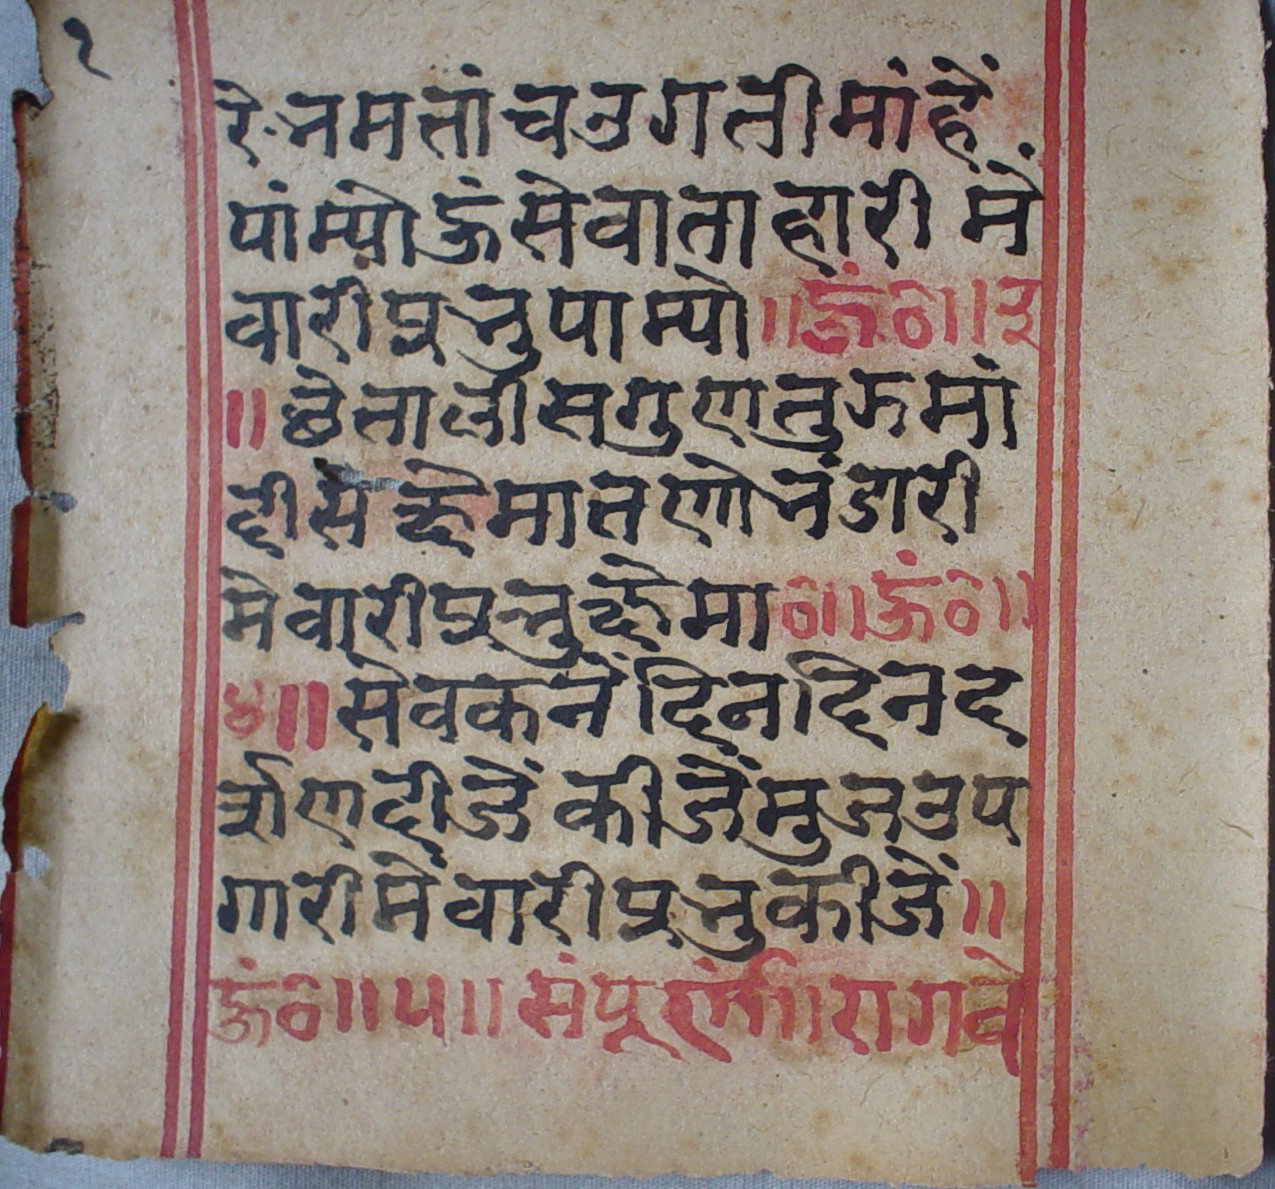 २
रे भमतां चउगती मांहें
पांम्यो ऊं सेवा ताहारी में
वारी प्रभु पाम्यो ॥ऊं०॥३
॥ छेतालीस गुण तुझ मां
ही स मा तणो भंडारी
में वारी प्रभु मा०॥ऊं०॥
४॥ सेवकनें दिन दिन द
र्शण दीजें कीजें मुज उप
गारी में वारी प्रभु कीजें॥
ऊं०॥५॥ संपूर्ण॥ राग वे